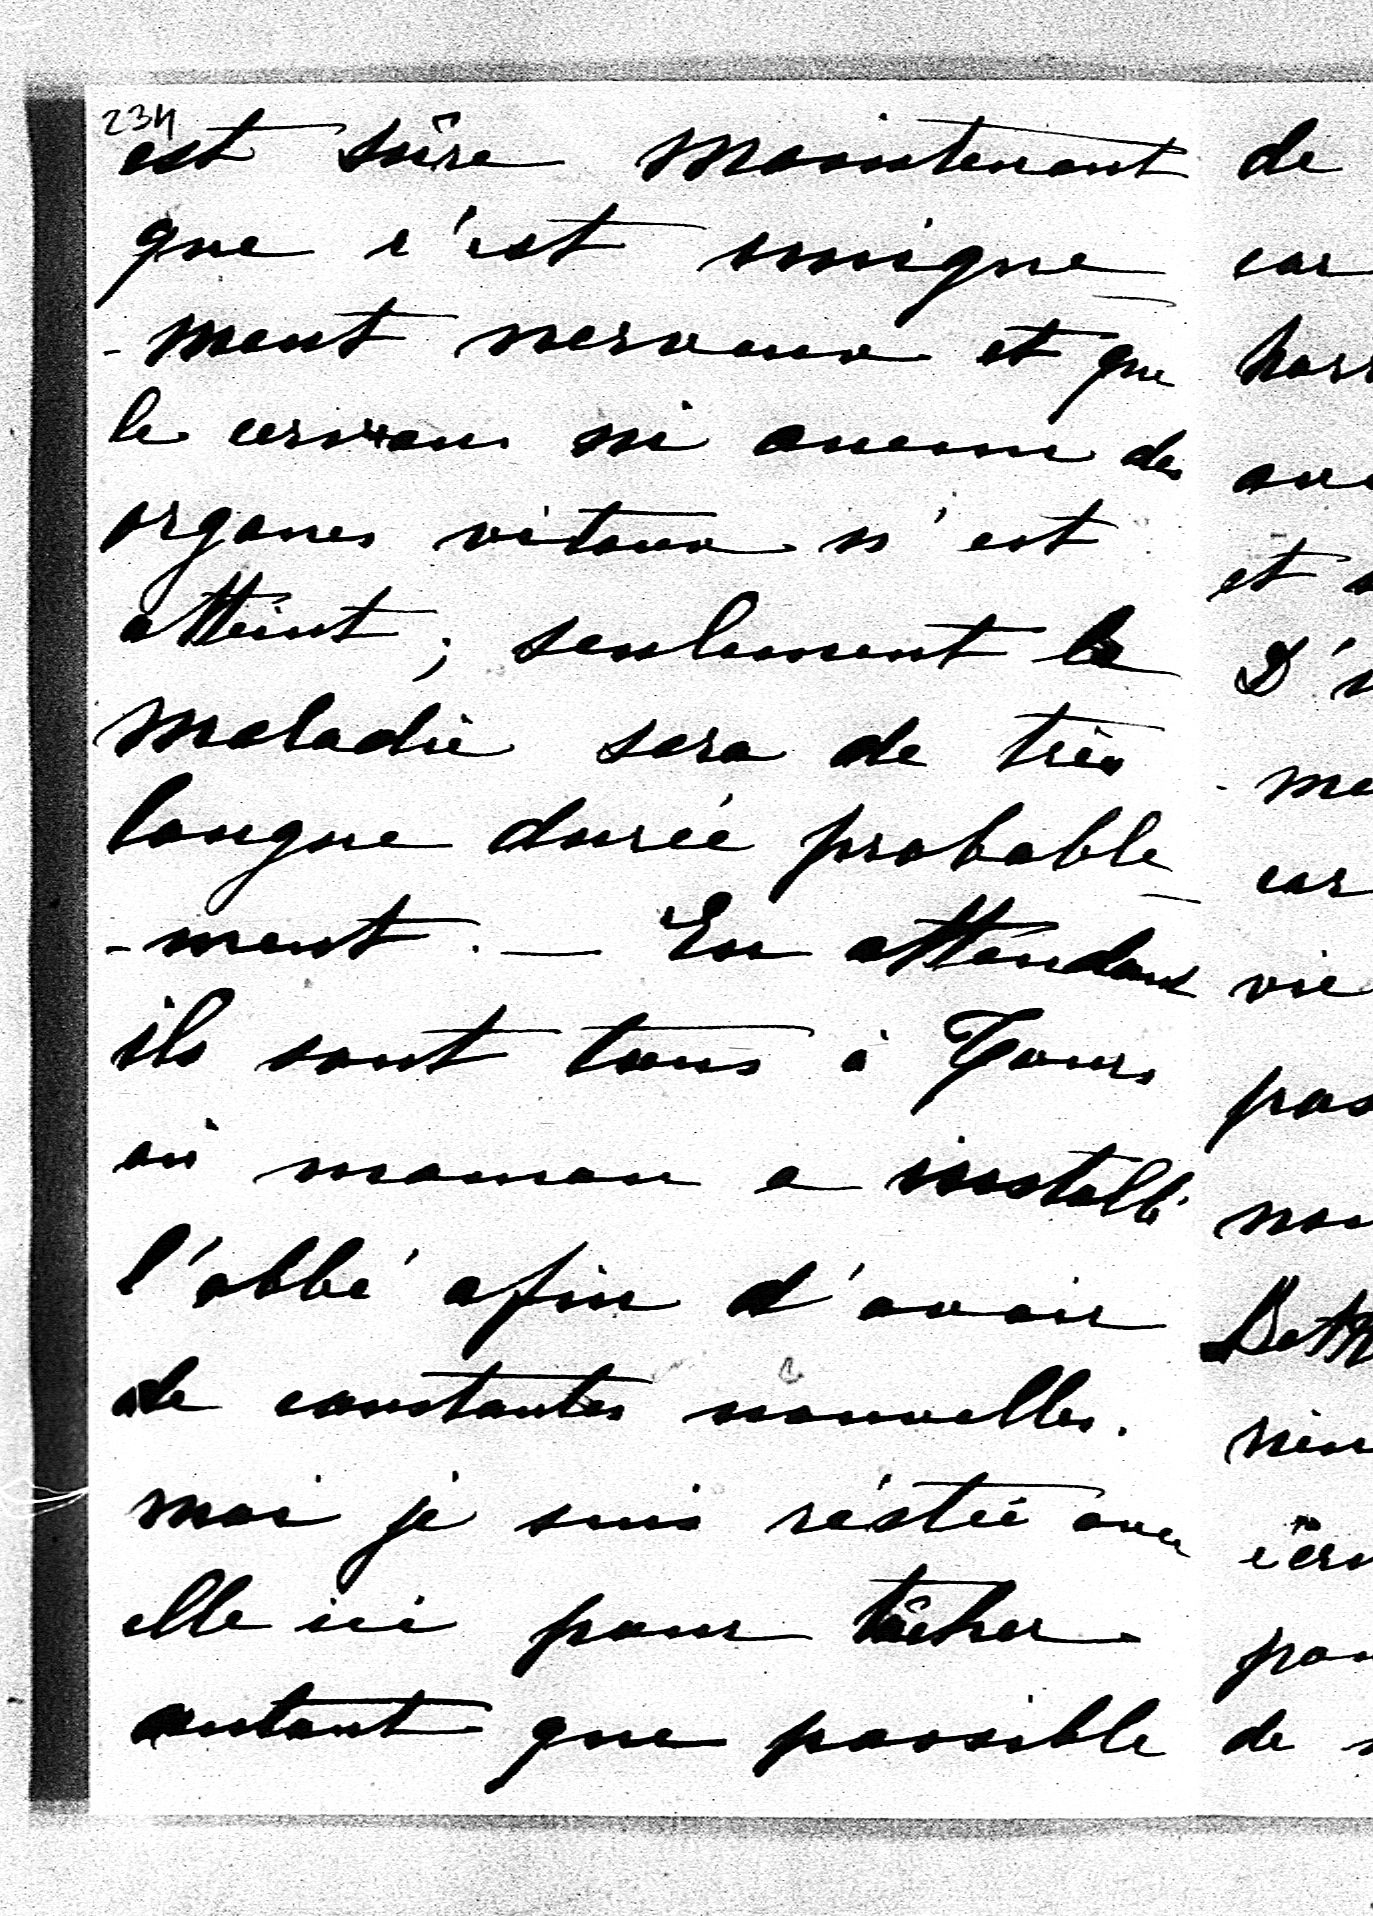 234
est sûre maintenant
que c'est unique
-ment nerveux et que
le cerveau ni aucun des
organes vitaux n'est
atteint ; seulement la
maladie sera de très
longue durée probable
-ment. — En attendant
ils sont tous à Tours
où maman a installé
l'abbé afin d'avoir
de constantes nouvelles.
moi je suis réstée avec
elle ici pour tâcher
autant que possible
de
car
et
vie
pas
de